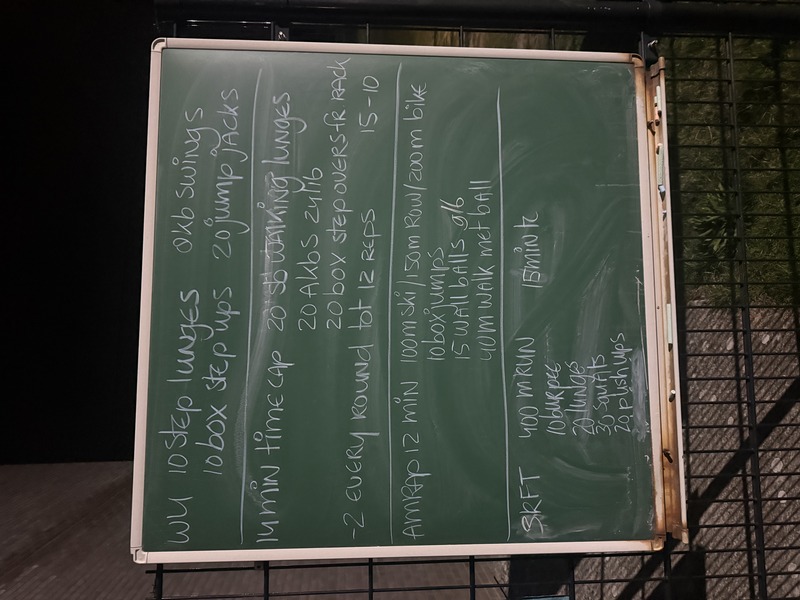 WU 10 step lunges kb swings
10 box step ups 20 jump jacks
14 min time cap 20 SB WALKING lunges
20 AKBS 24/16
20 box step overs fr rack
-2 EVERY ROUND tot 12 REPS 15-10
AMRAP 12 min 100m ski/150m row/200m bike
10 box jumps
15 wall balls 9/6
40m WALK met ball
3RFT 400 m RUN 15 min tc
10 burpee
20 lunges
30 squats
20 push ups